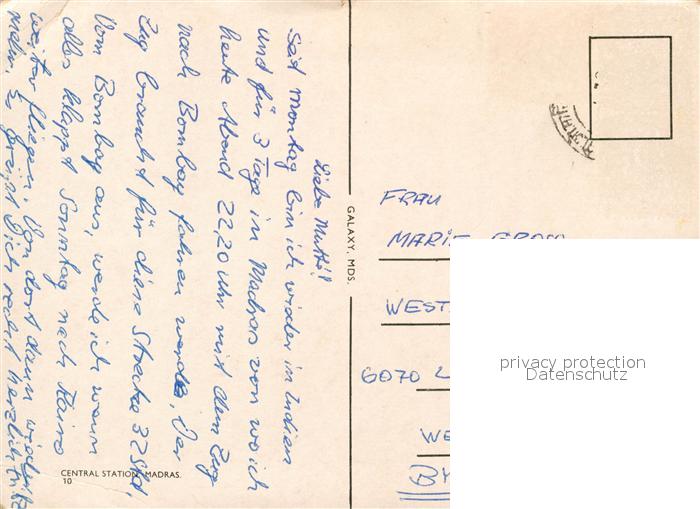 Liebe Mutti!
Seit Montag bin ich wieder in Indien
und für 3 Tage in Madras von wo ich
heute Abend 22,20 Uhr mit dem Zug
nach Bombay fahren werde, Der
Zug braucht für diese Strecke 32 Std,
Vom Bombay aus, werde ich wenn
alles klappt Sonntag nach Kairo
weiter fliegen, Von dort dann wieder
mehr, Es grüßt Dich recht herzlich Fritz
CENTRAL STATION, MADRAS.
10
GALAXY, MDS.
FRAU
MARIE
WEST
6070 L
WE
BY
privacy protection
Datenschutz